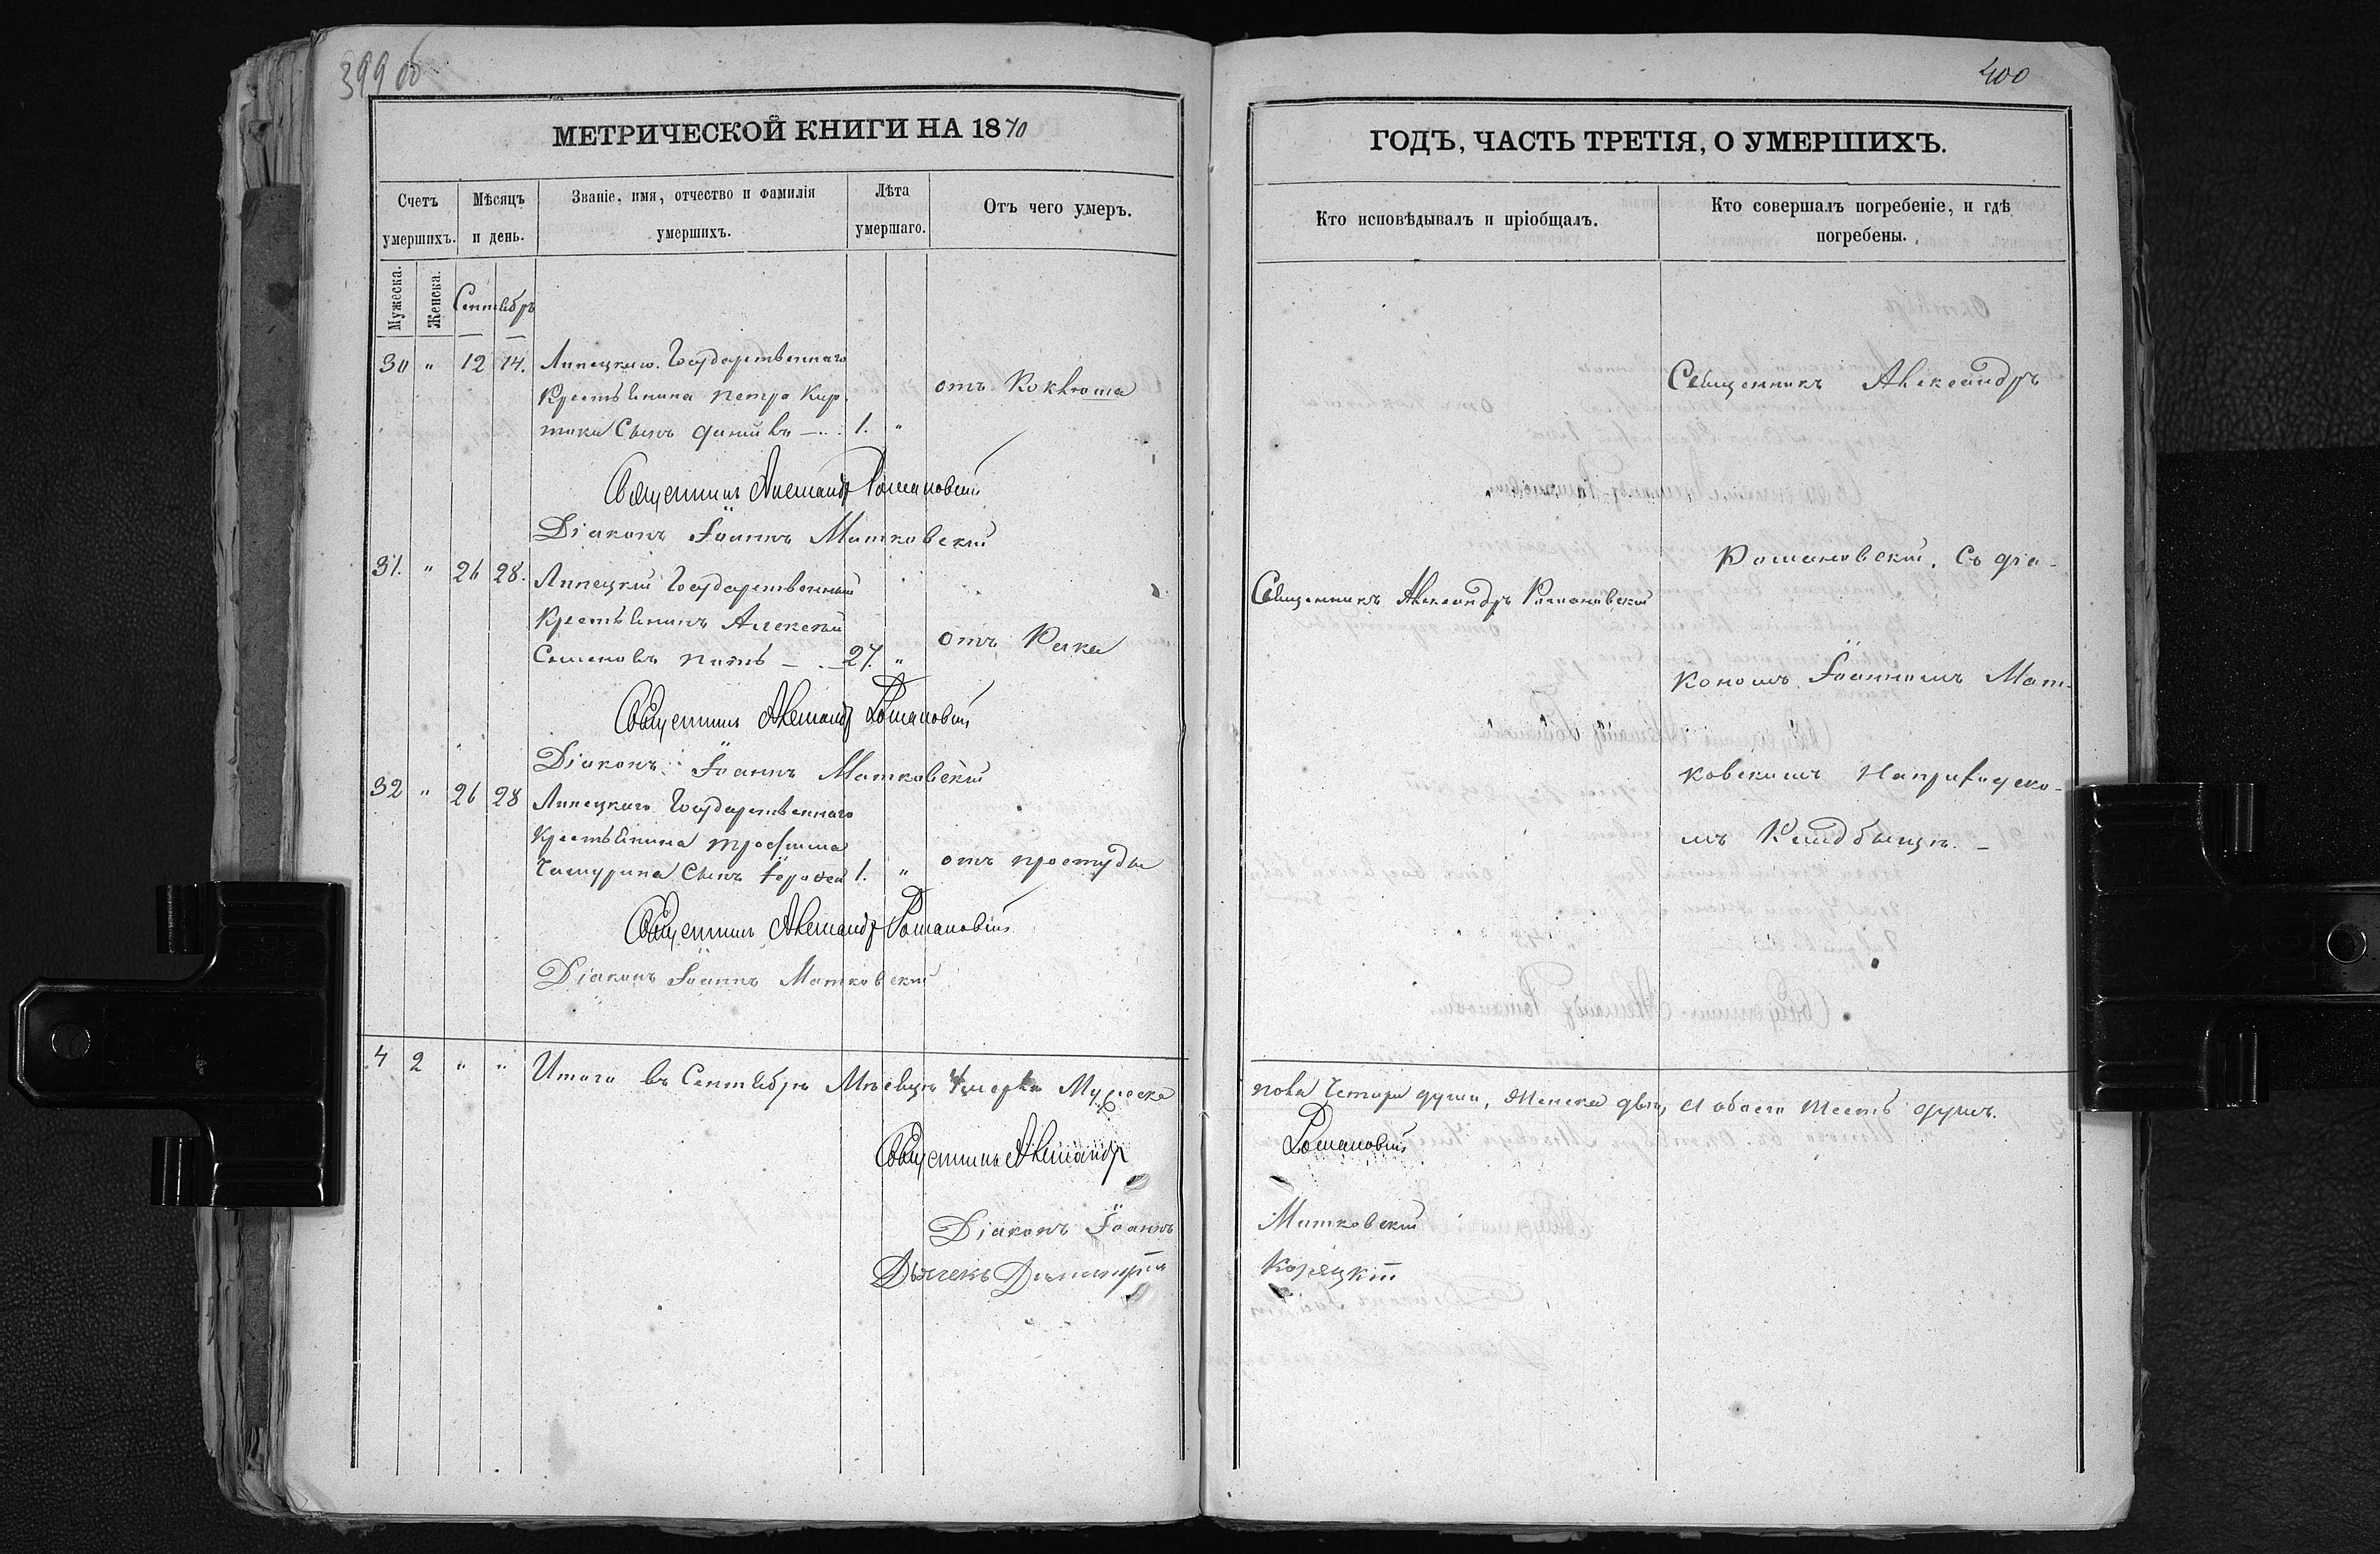 399 об
МЕТРИЧЕСКОЙ КНИГИ НА 1870
Счетъ умершихъ.
Мѣсяцъ и день.
Званіе, имя, отчество и фамилія умершихъ.
Лѣта умершаго.
Отъ чего умеръ.
Мужеска.
Женска.
Сентябрь
30 " 12 14. Липецкаго Государственнаго
Крестьянина Петра Кир-
отъ Коклюша
сынъ 1. "
Священникъ Александръ Романовскій
Діаконъ Іоаннъ Матковскій
31. " 26 28. Липецкий Государственный
Крестьянинъ Алексей
Семеновъ 27. " отъ Рака
Священникъ Александръ Романовскій
Діаконъ Іоаннъ Матковскій
32 " 26 28 Липецкаго Государственнаго
Крестьянина Трофима
Чамурина сынъ 1. " отъ простуды
Священникъ Александръ Романовскій
Діаконъ Іоаннъ Матковский
4 2 " " Итого въ Сентябрѣ Мѣсяцѣ Умерло Мужеска
Священникъ Александръ
Діаконъ Іоаннъ
Дьячекъ Димитрій
400
ГОДЪ, ЧАСТЬ ТРЕТІЯ, О УМЕРШИХЪ.
Кто исповѣдывалъ и пріобщалъ.
Кто совершалъ погребеніе, и гдѣ погребены.
Священникъ Александръ
Романовский, Съ діа-
Священникъ Александръ Романовский
кономъ Іоанномъ Мат-
ковскимъ На приходско-
мъ Кладбищѣ. –
пола Четыри души, Женска двѣ, А обоего Шесть душъ.
Романовскій
Матковский
Корецкій